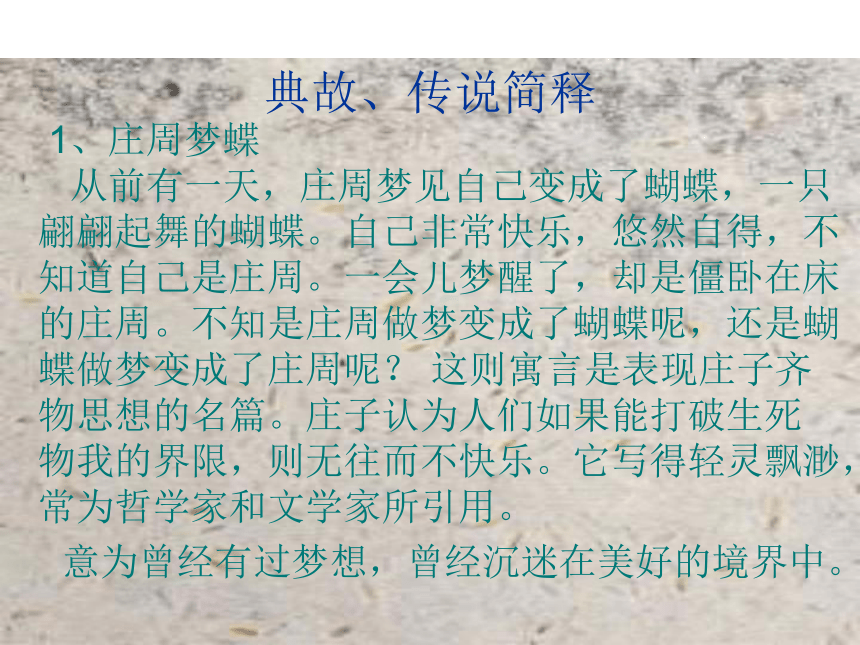 典故、传说简释
1、庄周梦蝶
从前有一天，庄周梦见自己变成了蝴蝶，一只
翩翩起舞的蝴蝶。自己非常快乐，悠然自得，不
知道自己是庄周。一会儿梦醒了，却是僵卧在床
的庄周。不知是庄周做梦变成了蝴蝶呢，还是蝴
蝶做梦变成了庄周呢？ 这则寓言是表现庄子齐
物思想的名篇。庄子认为人们如果能打破生死
物我的界限，则无往而不快乐。它写得轻灵飘渺，
常为哲学家和文学家所引用。
意为曾经有过梦想，曾经沉迷在美好的境界中。